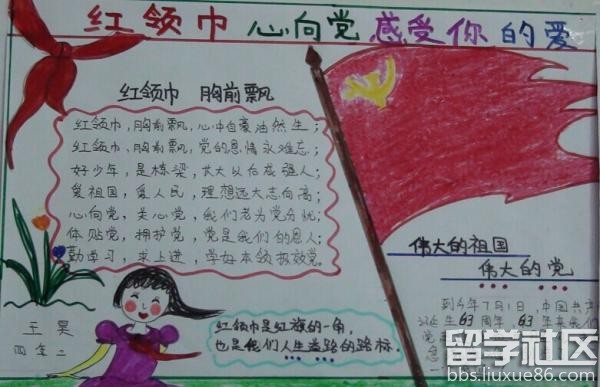 红领巾 心向党 感受你的爱
红领巾 胸前飘
红领巾，胸前飘，心中自豪油然生；
红领巾，胸前飘，党的恩情永难忘；
好少年，是栋梁，长大以后成强人；
爱祖国，爱人民，理想远大志向高；
心向党，关心党，我们老为党分忧；
体贴党，拥护党，党是我们的恩人；
勤学习，求上进，学好本领报效党。
伟大的祖国
伟大的党
到今年7月1日，中国共产
63周年 63年来我们
党
王昊
四年二
红领巾是红旗的一角，
也是我们人生道路的路标。
留学社区
bbs.liuxue86.com